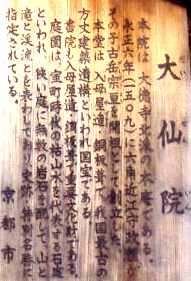 大仙院
本院は大徳寺北派の本庵である。
永正六年（一五〇九）に六角近江守政頼が
その子古岳宗亘を開祖として創立した。
本堂は入母屋造・銅板葺で、我国最古の
方丈建築遺構といわれ国宝である。
書院も入母屋造・銅板葺で重要文化財である。
庭園は、室町時代の枯山水を代表する石庭
といわれ、狭い庭に無数の岩石を配して、山と
滝と渓流とを表わして、史跡・特別名勝に
指定されている。
京都市